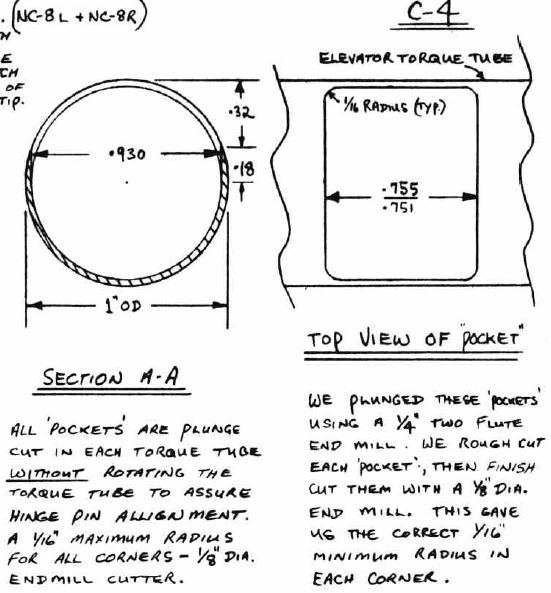 . (NC-8L + NC-8R)
H
E
CH
OF
TIP.
C-4
ELEVATOR TORQUE TUBE
1/16 RADIUS (TYP.)
.32
.930
.18
.755
.751
1" OD
TOP VIEW OF "POCKET"
SECTION A-A
ALL 'POCKETS' ARE PLUNGE
CUT IN EACH TORQUE TUBE
WITHOUT ROTATING THE
TORQUE TUBE TO ASSURE
HINGE PIN ALLIGNMENT.
A 1/16" MAXIMUM RADIUS
FOR ALL CORNERS - 1/8" DIA.
ENDMILL CUTTER.
WE PLUNGED THESE 'POCKETS'
USING A 1/4" TWO FLUTE
END MILL. WE ROUGH CUT
EACH 'POCKET', THEN FINISH
CUT THEM WITH A 1/8" DIA.
END MILL. THIS GAVE
US THE CORRECT 1/16"
MINIMUM RADIUS IN
EACH CORNER.